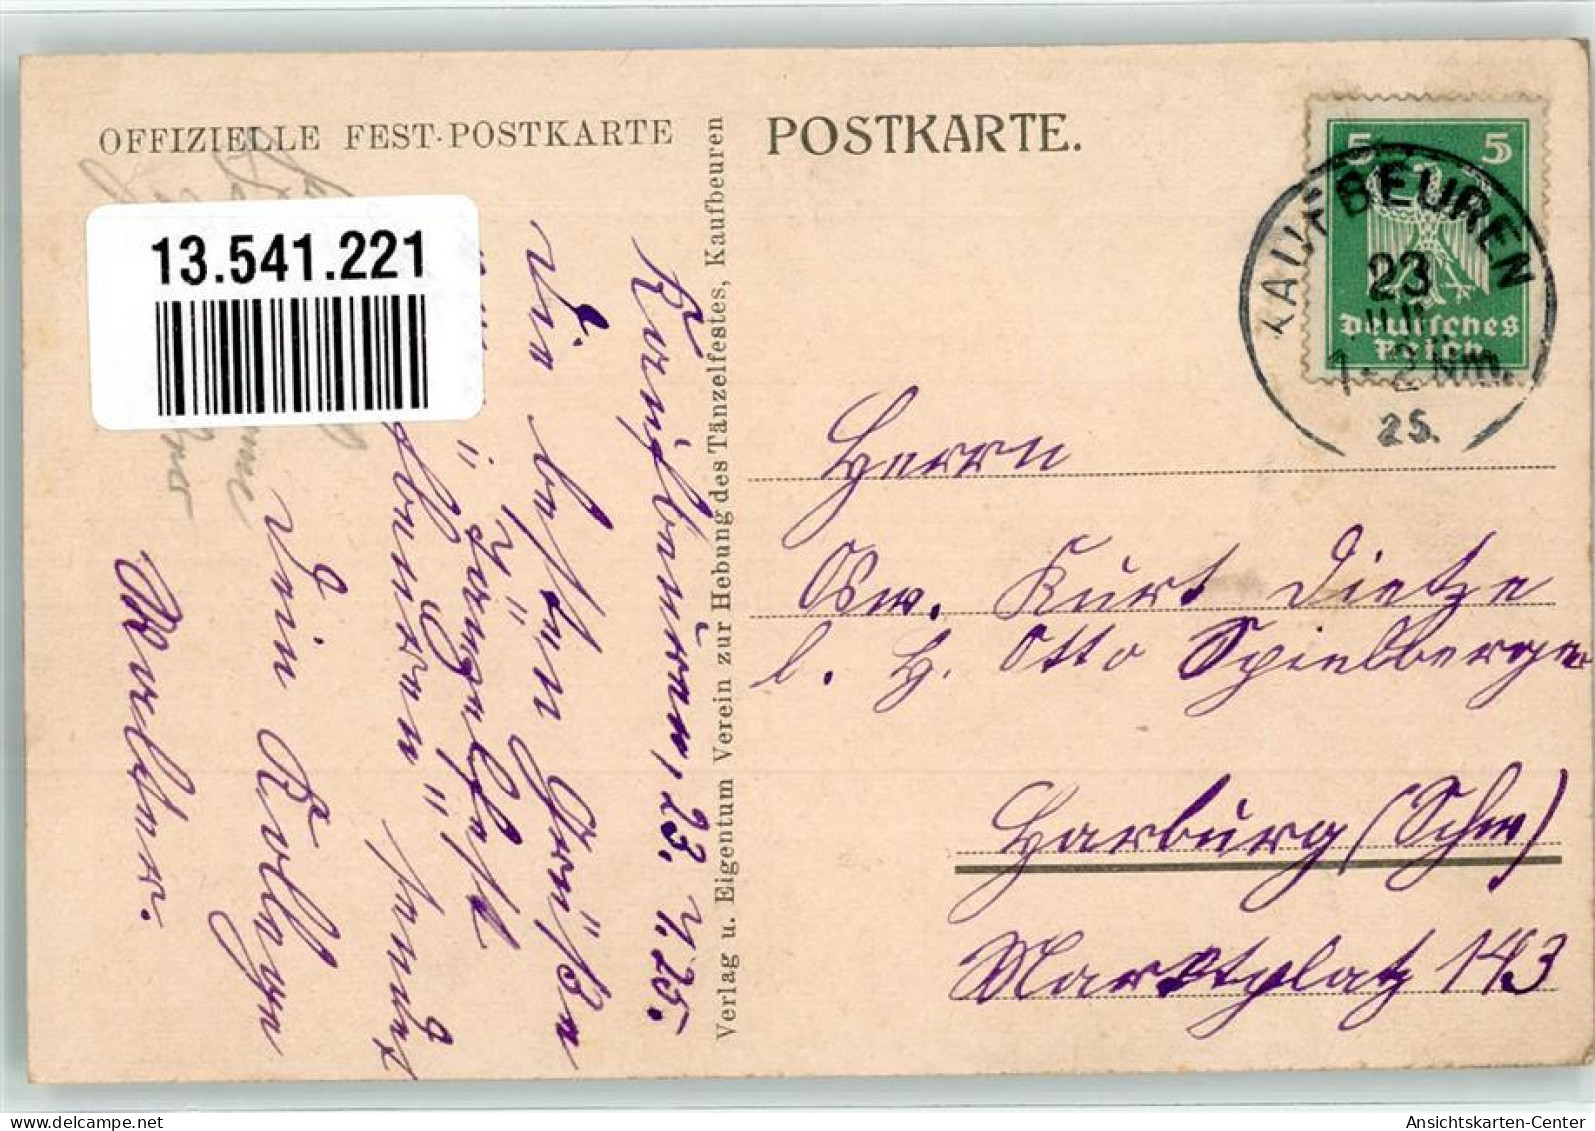 OFFIZIELLE FEST-POSTKARTE
POSTKARTE.
5 5
Deutsches
Reich
KAUFBEUREN
23
1-2 Nm.
25.
13.541.221
Verlag u. Eigentum Verein zur Hebung des Tänzelfestes, Kaufbeuren
Kaufbeuren, 23. 7. 25.
Die besten Grüße
Tänzelfest
beuren" sendet
Dein Kollege
Herrn
Kurt Dietze
b. H. Otto Spielberger
Harburg (Schw)
Marktplatz 143
Ansichtskarten-Center